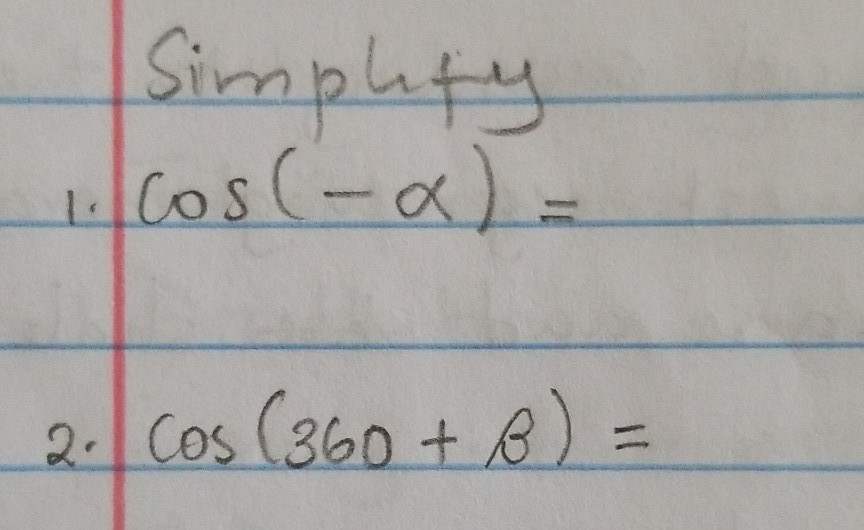 Simplify
1. cos(-α) =
2. cos(360 + β) =